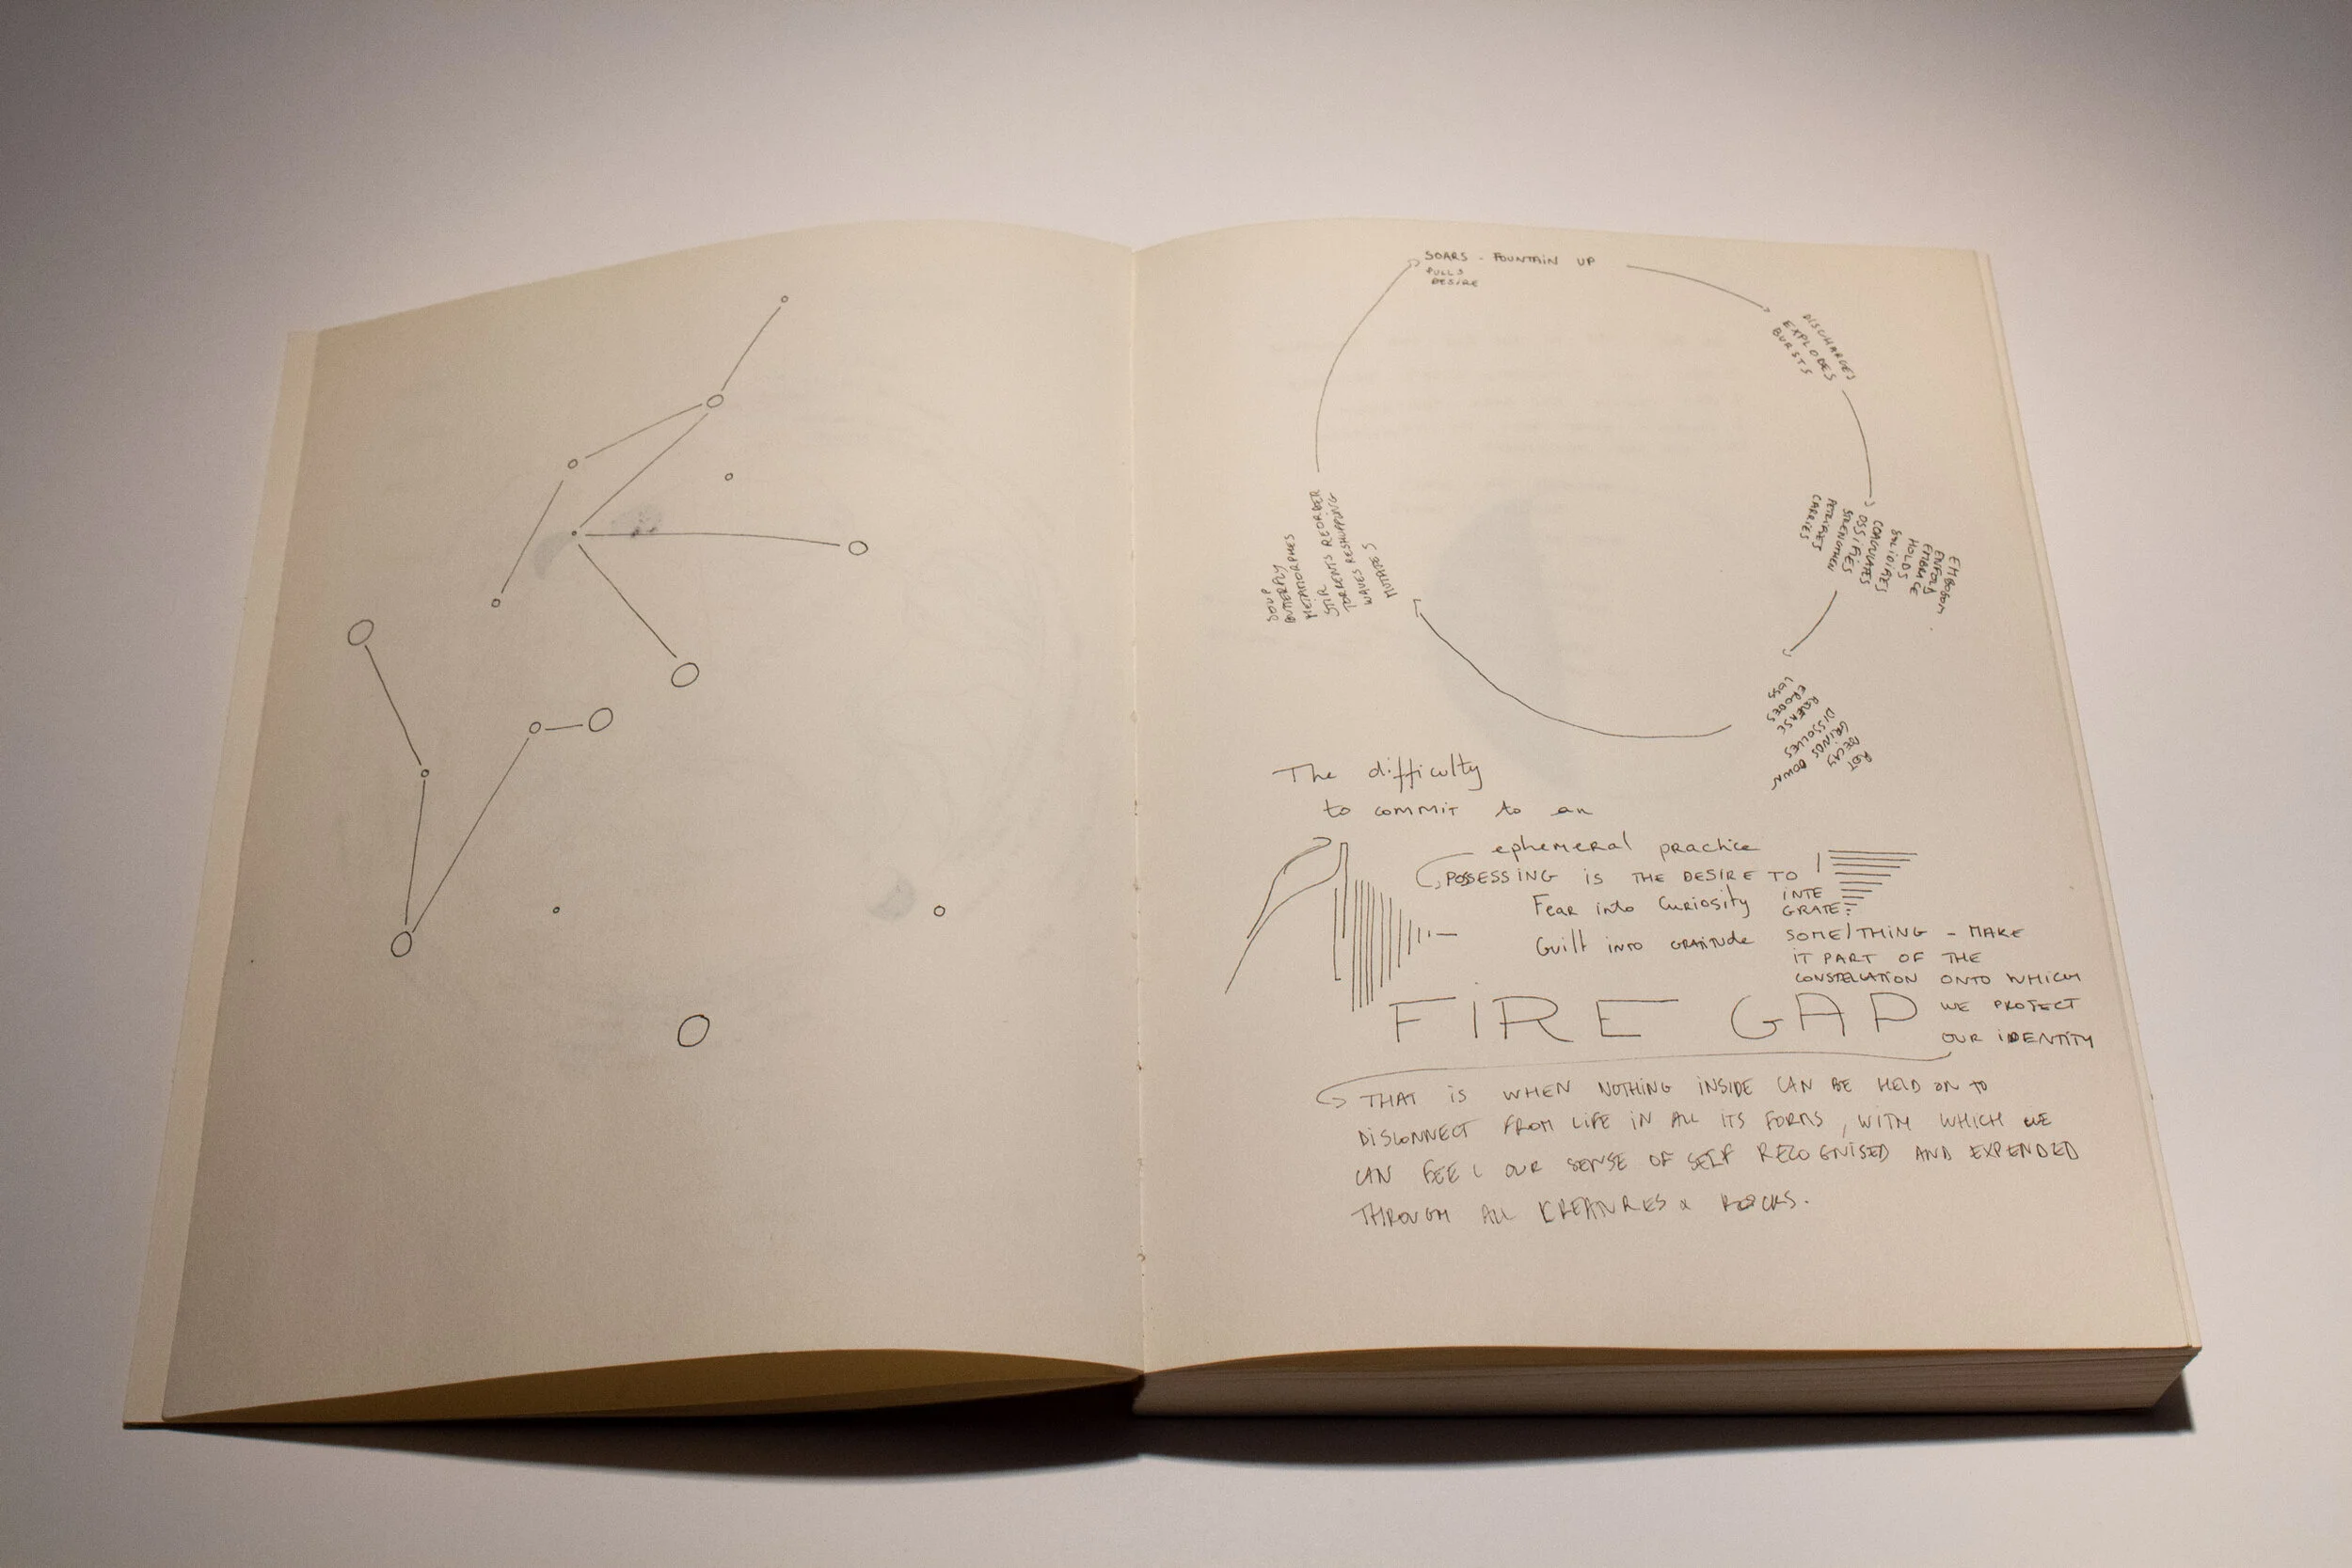 SOARS - FOUNTAIN UP
PULLS
DESIRE
DISCHARGES
EXPLODES
BURSTS
EMBOSOM
ENFOLD
EMBRACE
HOLDS
SOLIDIFIES
COAGULATES
OSSIFIES
STRENGTHEN
PETRIFIES
CARRIES
ROT
DECAY
GRINDS DOWN
DISSOLVES
RELEASE
ERODES
LOSS
SOUP
BUTTERFLY
METAMORPHES
STIR
TORRENTS REORDER
WAVES RESHAPPING
MUTATES
The difficulty
to commit to an
ephemeral practice
POSSESSING IS THE DESIRE TO
INTE
GRATE
Fear into Curiosity
Guilt into GRATITUDE
SOME/THING - MAKE
IT PART OF THE
CONSTELLATION ONTO WHICH
WE PROJECT
OUR IDENTITY
FIRE GAP
THAT IS WHEN NOTHING INSIDE CAN BE HELD ON TO
DISCONNECT FROM LIFE IN ALL ITS FORMS, WITH WHICH WE
CAN FEEL OUR SENSE OF SELF RECOGNISED AND EXPENDED
THROUGH ALL KREATURES & ROCKS.